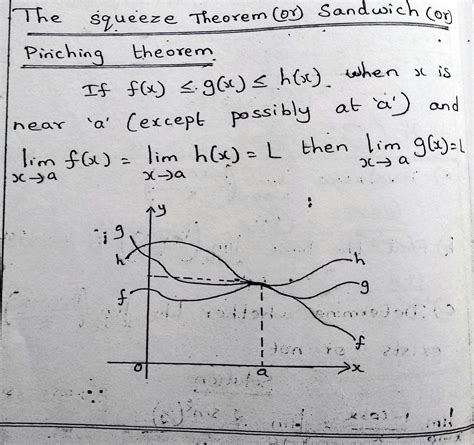 The squeeze Theorem (or) Sandwich (or)
Pinching theorem.
If f(x) ≤ g(x) ≤ h(x) when x is
near 'a' (except possibly at 'a') and
lim f(x) = lim h(x) = L then lim g(x)=L
x→a x→a x→a
y
g
h
h
g
f
f
0
a
x